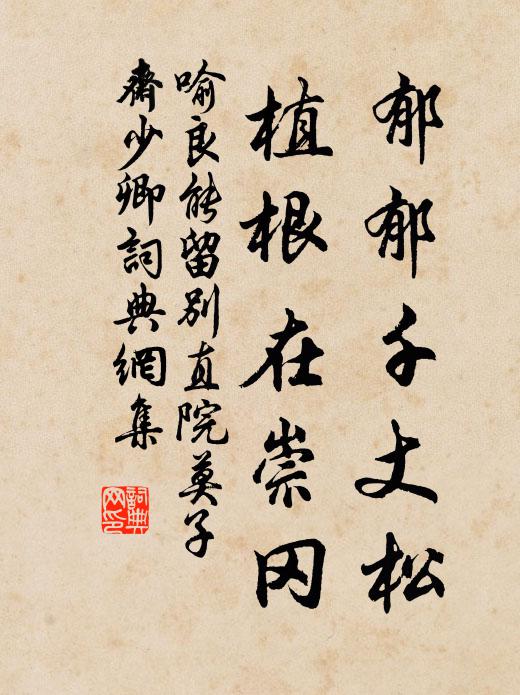 郁郁千丈松
植根在崇冈
喻良能留别直院莫子
齋少卿詞典網集
詞典网印